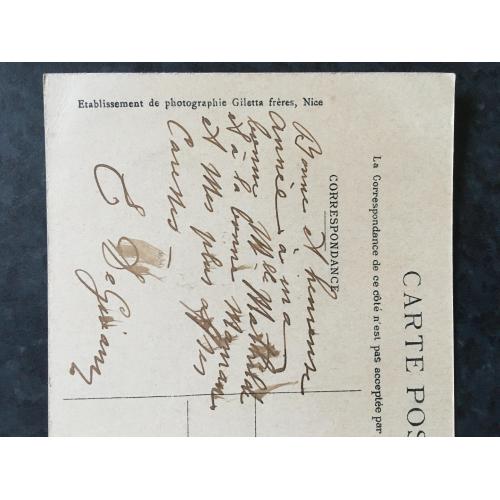 CARTE POS
La Correspondance de ce côté n'est pas acceptée par
CORRESPONDANCE
Bonne et heureuse
année à ma
bonne Mlle Mathilde
et à la bonne Maman
et Mes plus aff
Cannes —
E
Etablissement de photographie Giletta frères, Nice